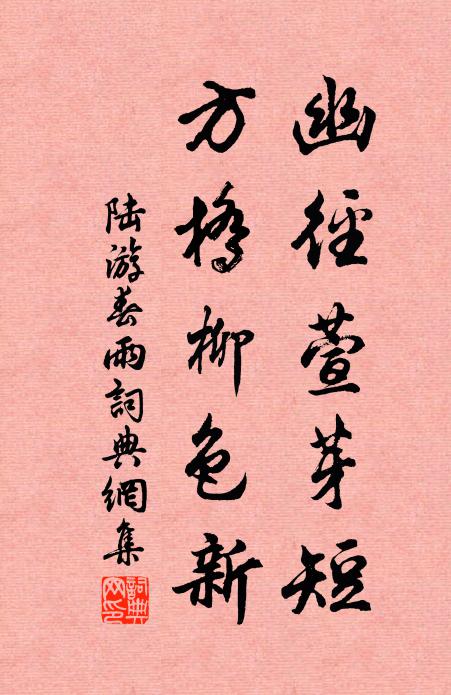 幽徑萱芽短
方橋柳色新
陸游春雨詞典網集
詞典網印